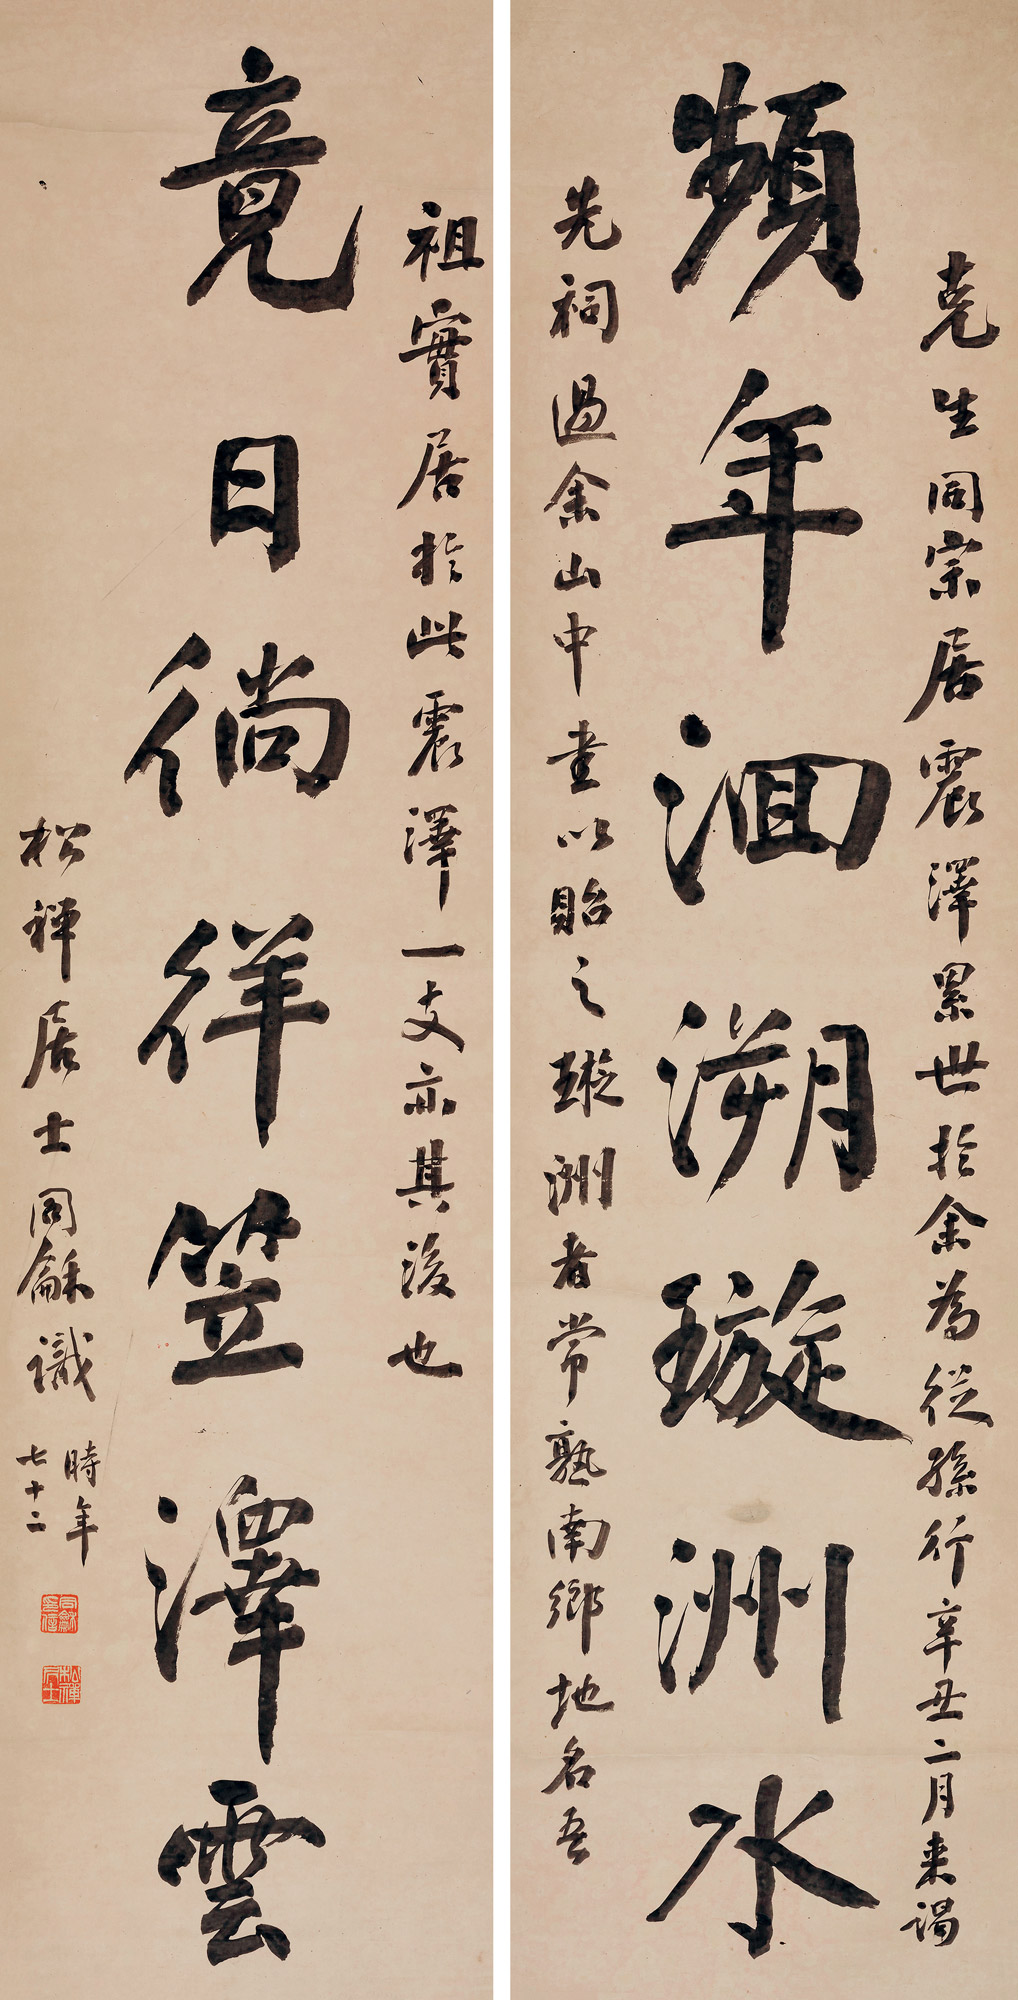 克生同宗居震澤累世於余為從孫行辛丑二月来謁
頻年洄溯璇洲水
先祠過余山中書以貽之璇洲者常熟南鄉地名吾
祖實居於此震澤一支亦其後也
竟日徜徉笠澤雲
松禅居士同龢識
時年
七十二
同龢印信
松禪居士